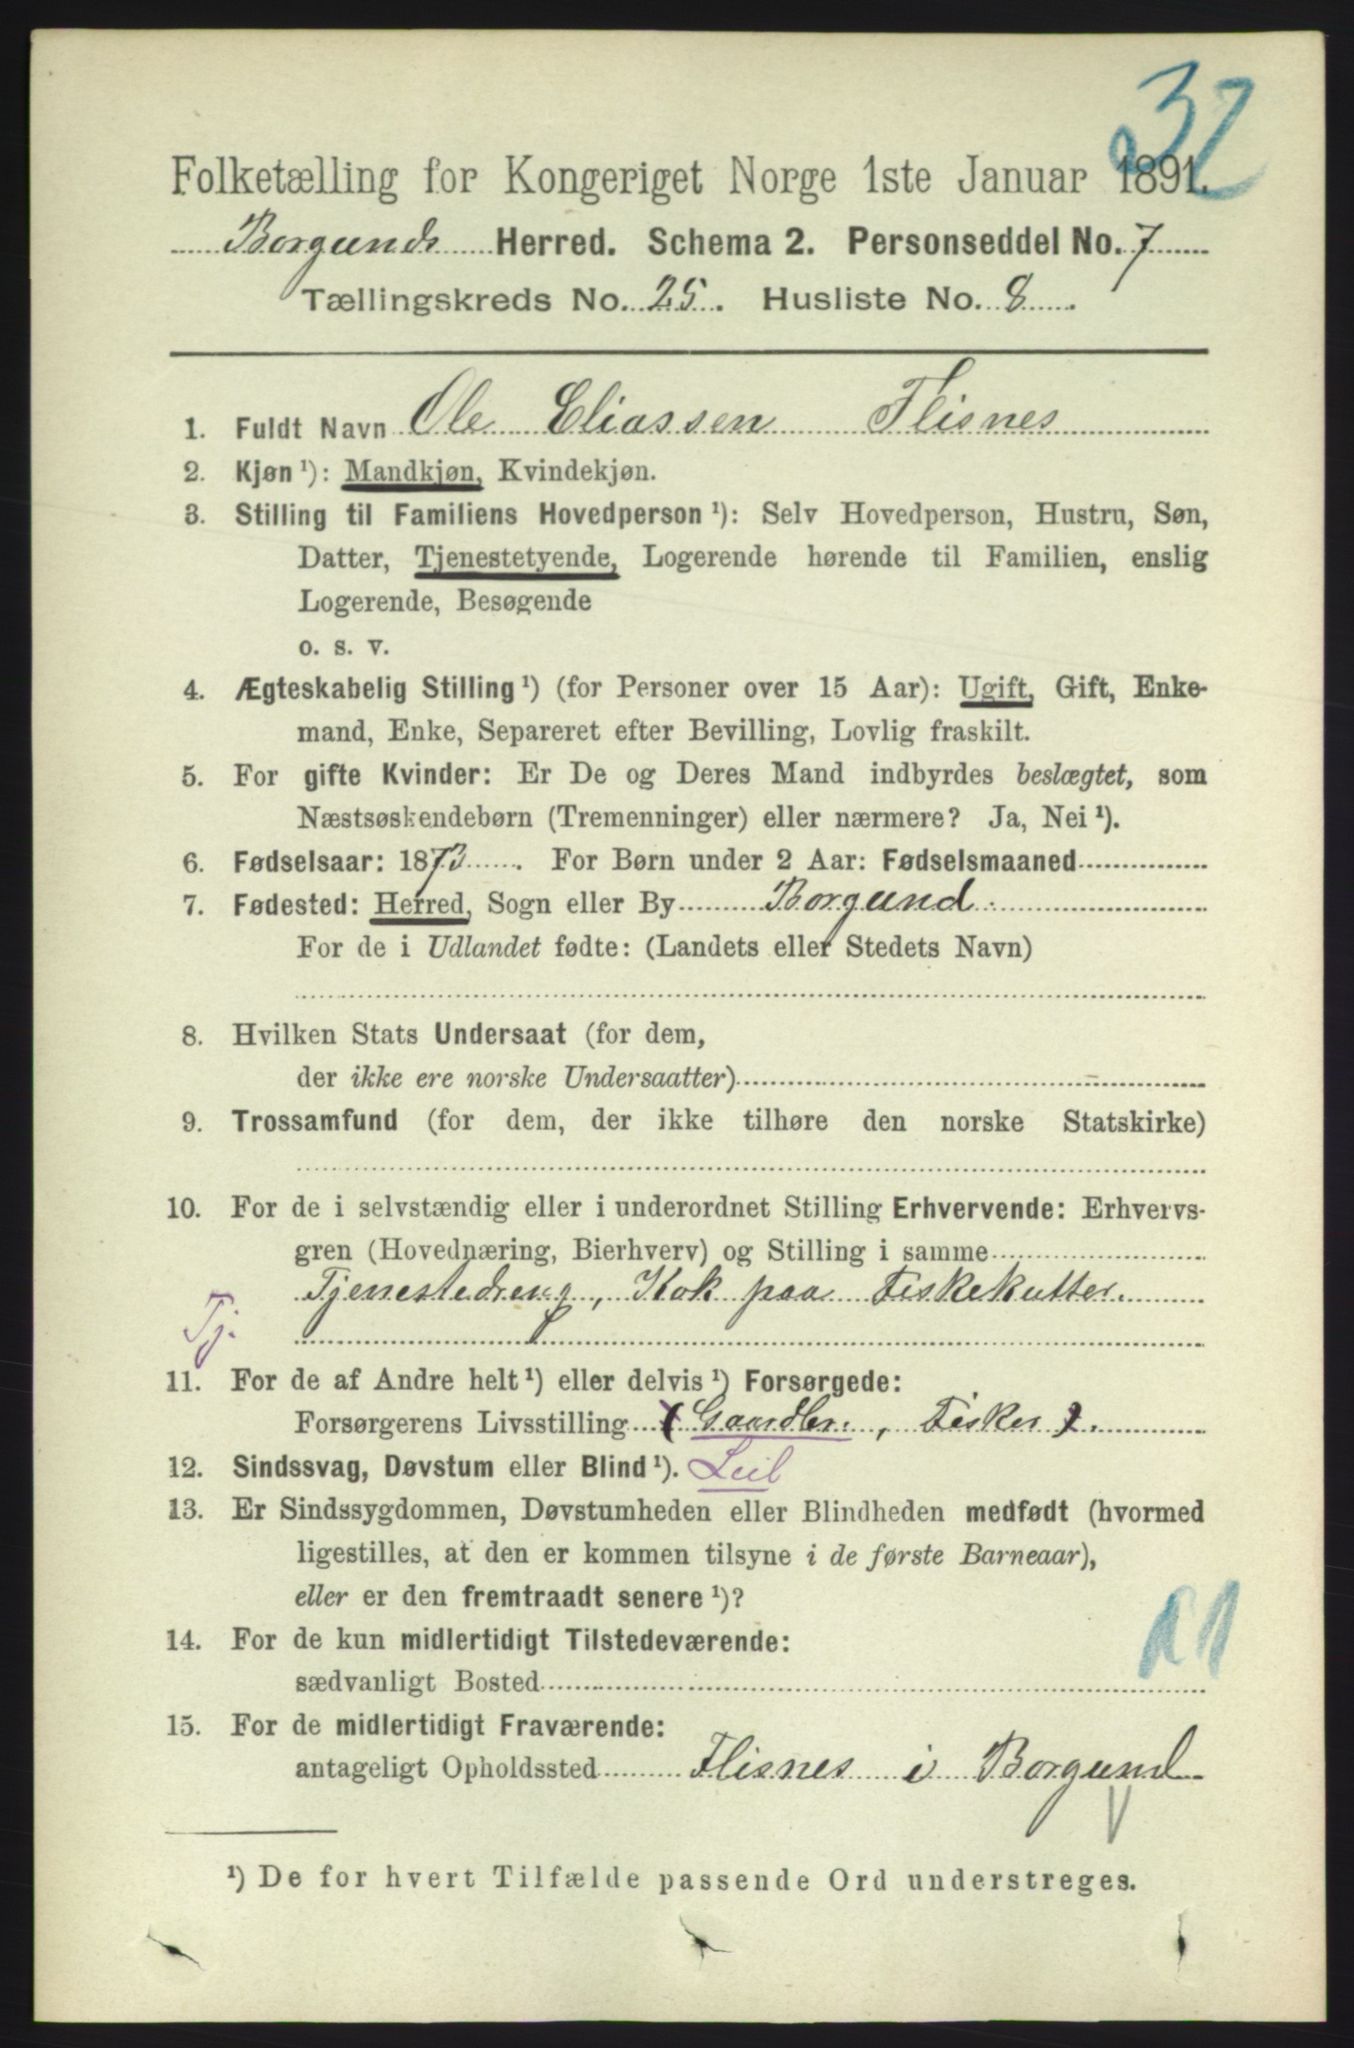 32
Folketælling for Kongeriget Norge 1ste Januar 1891.
Borgunds Herred. Schema 2. Personseddel No. 7
Tællingskreds No. 25. Husliste No. 8.
1. Fuldt Navn Ole Eliassen Flisnes
2. Kjøn ¹): Mandkjøn, Kvindekjøn.
3. Stilling til Familiens Hovedperson ¹): Selv Hovedperson, Hustru, Søn,
Datter, Tjenestetyende, Logerende hørende til Familien, enslig
Logerende, Besøgende
o. s. v.
4. Ægteskabelig Stilling ¹) (for Personer over 15 Aar): Ugift, Gift, Enke-
mand, Enke, Separeret efter Bevilling, Lovlig fraskilt.
5. For gifte Kvinder: Er De og Deres Mand indbyrdes beslægtet, som
Næstsøskendebørn (Tremenninger) eller nærmere? Ja, Nei ¹).
6. Fødselsaar: 1873. For Børn under 2 Aar: Fødselsmaaned
7. Fødested: Herred, Sogn eller By Borgund.
For de i Udlandet fødte: (Landets eller Stedets Navn)
8. Hvilken Stats Undersaat (for dem,
der ikke ere norske Undersaatter)
9. Trossamfund (for dem, der ikke tilhøre den norske Statskirke)
10. For de i selvstændig eller i underordnet Stilling Erhvervende: Erhvervs-
gren (Hovednæring, Bierhverv) og Stilling i samme
Tjenestedreng, Kok paa Fiskekutter.
Tj.
11. For de af Andre helt ¹) eller delvis ¹) Forsørgede:
Forsørgerens Livsstilling (Gaardbr., Fisker).
12. Sindssvag, Døvstum eller Blind ¹). Leil
13. Er Sindssygdommen, Døvstumheden eller Blindheden medfødt (hvormed
ligestilles, at den er kommen tilsyne i de første Barneaar),
eller er den fremtraadt senere ¹)?
14. For de kun midlertidigt Tilstedeværende:
sædvanligt Bosted
15. For de midlertidigt Fraværende:
antageligt Opholdssted Flisnes i Borgund
¹) De for hvert Tilfælde passende Ord understreges.